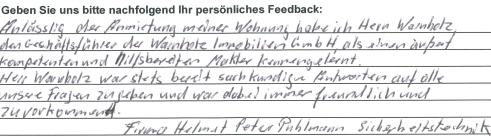 Geben Sie uns bitte nachfolgend Ihr persönliches Feedback:
Anlässlig der Anmietung meiner Wohnung habe ich Herrn Warnholz,
den Geschäftsführer der Warnholz Immobilien GmbH, als einen äußerst
kompetenten und hilfsbereiten Makler kennengelernt.
Herr Warnholz war stets bereit sachkundige Antworten auf alle
unsere Fragen zu geben und war dabei immer freundlich und
zuvorkommend.
Firma Helmut Peter Puhlmann Sicherheitstechnik